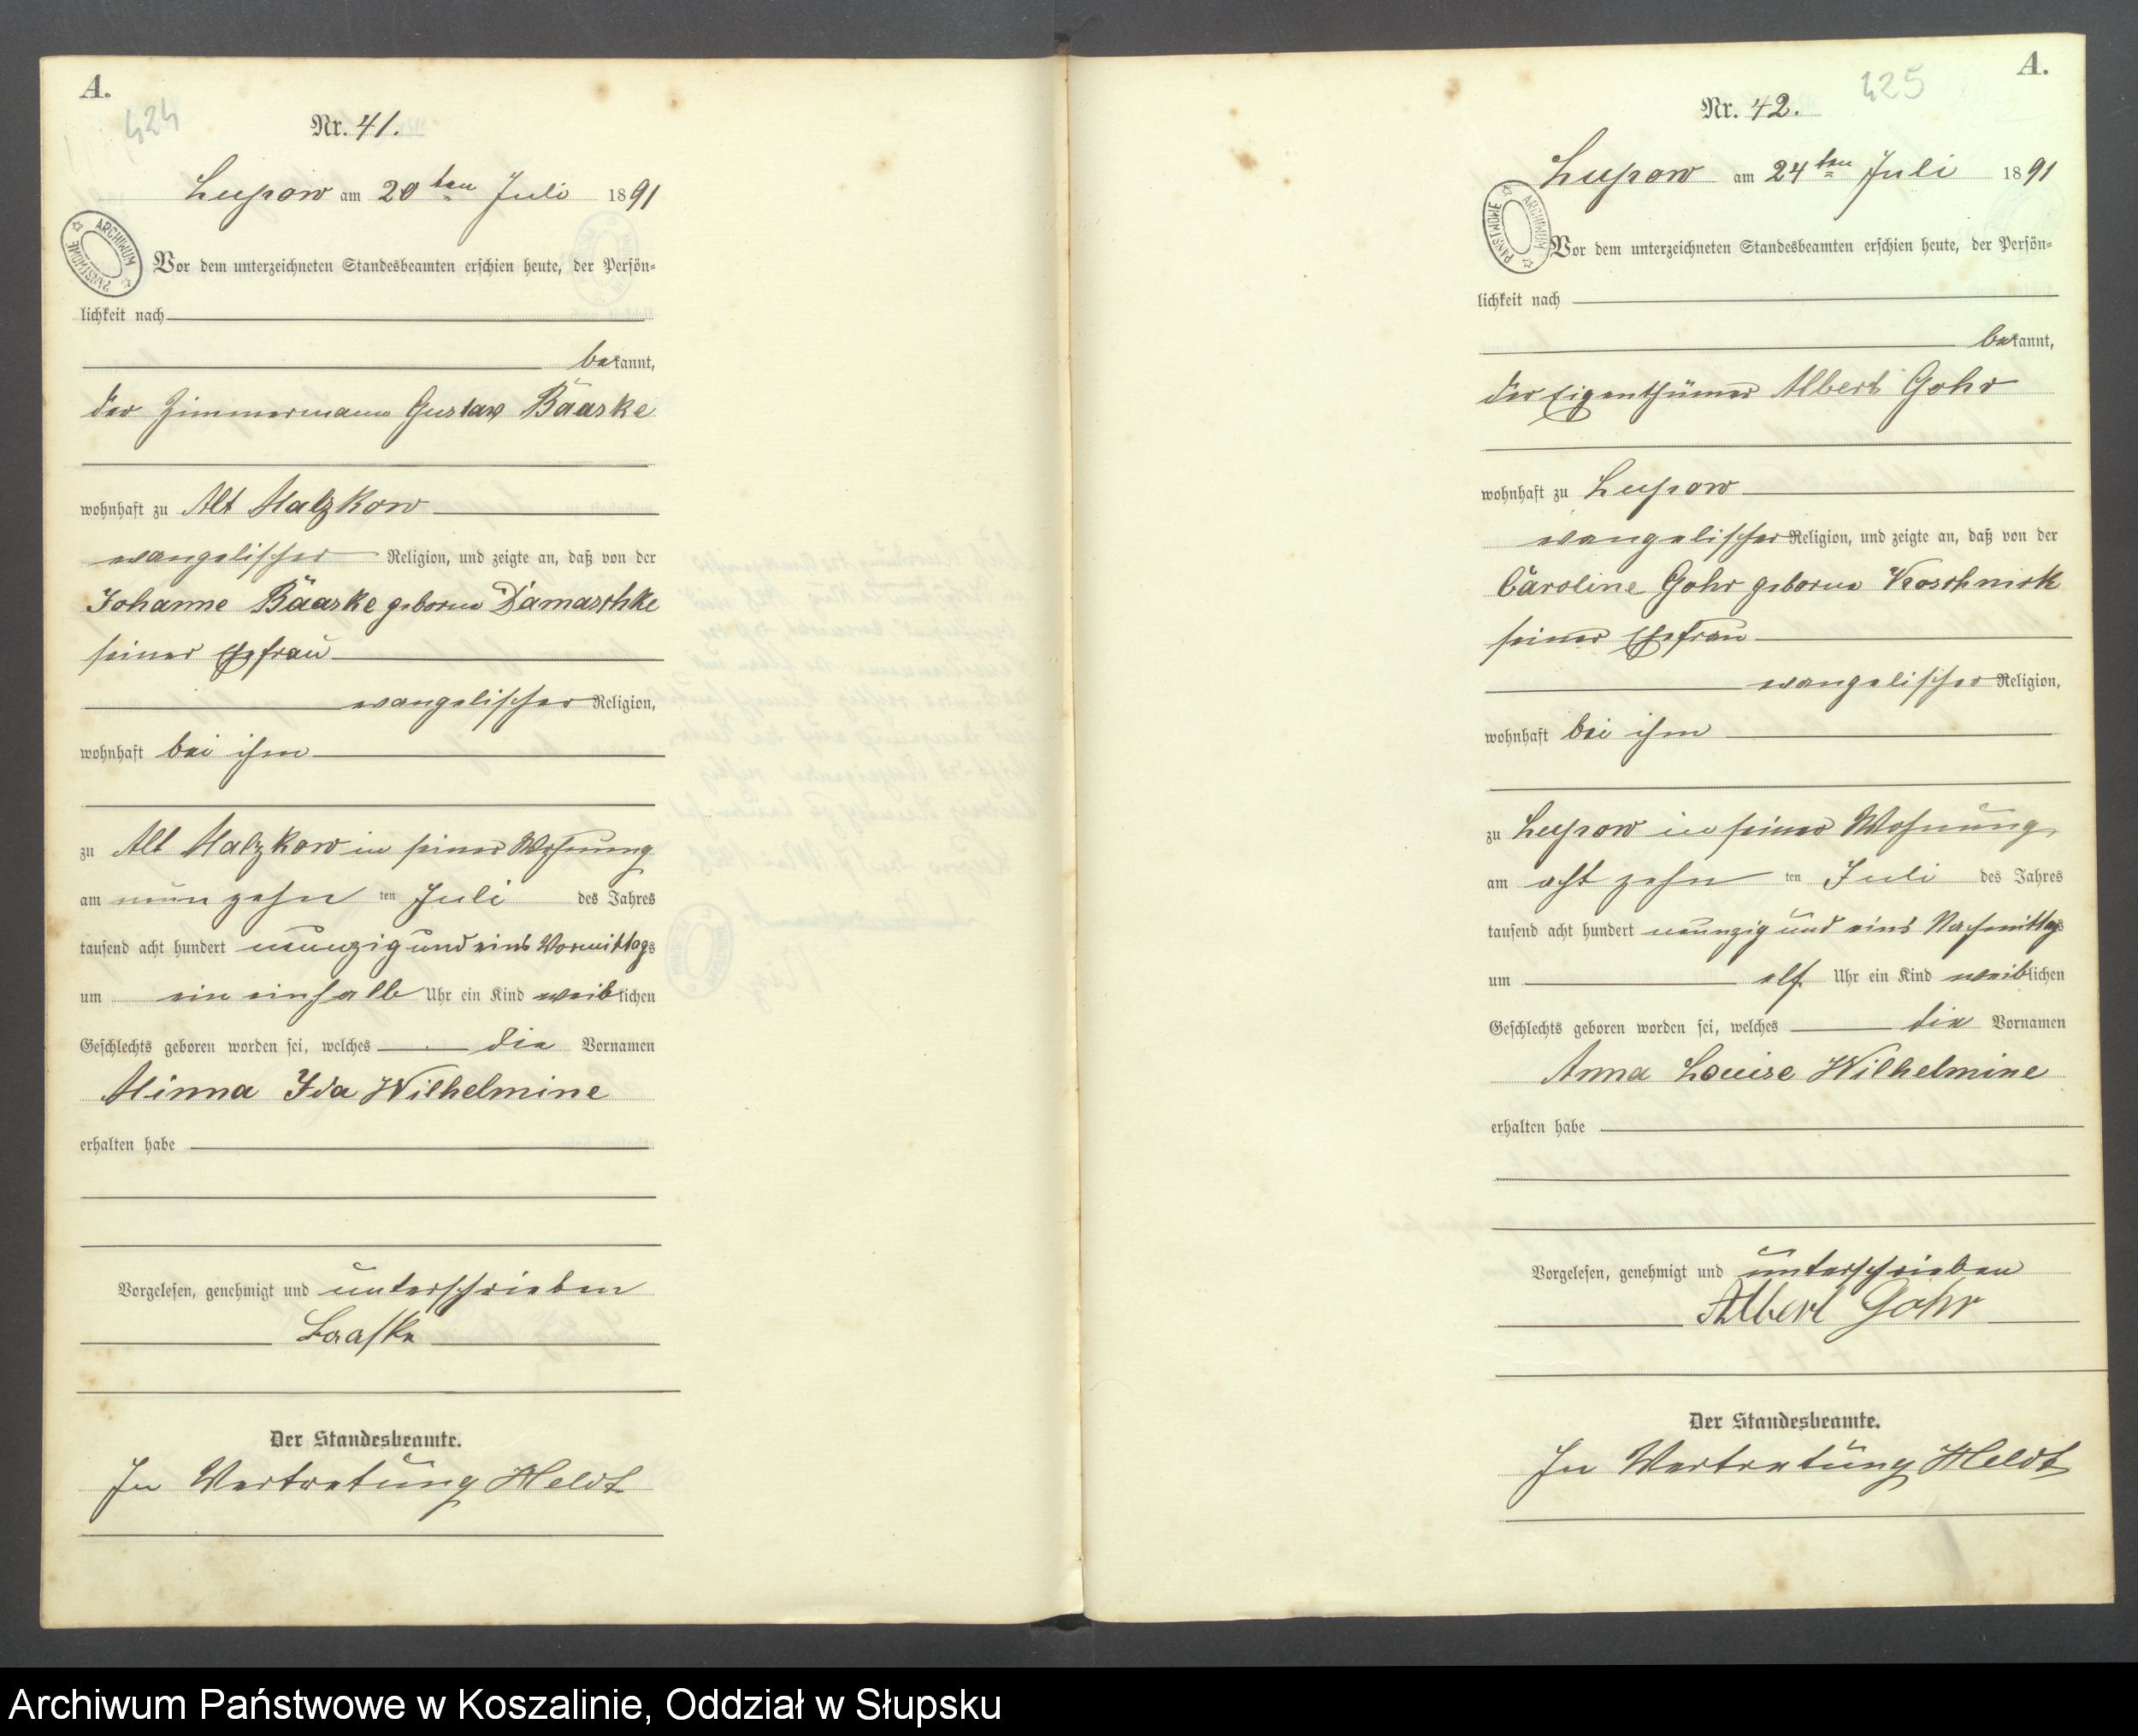 A.
424
Nr. 41.
Lupow am 20ten Juli 1891
ARCHIWUM PAŃSTWOWE
Vor dem unterzeichneten Standesbeamten erschien heute, der Persön=
lichkeit nach
bekannt,
der Zimmermann Gustav Baaske
wohnhaft zu Alt Malzkow
evangelischer Religion, und zeigte an, daß von der
Johanne Baaske geborne Damaschke
seiner Ehefrau
evangelischer Religion,
wohnhaft bei ihm
zu Alt Malzkow in seiner Wohnung
am neunzehn ten Juli des Jahres
tausend acht hundert neunzig und eins Vormittags
um ein einhalb Uhr ein Kind weiblichen
Geschlechts geboren worden sei, welches die Vornamen
Minna Ida Wilhelmine
erhalten habe
Vorgelesen, genehmigt und unterschrieben
Baaske
Der Standesbeamte.
In Vertretung Heldt
A.
425
Nr. 42.
Lupow am 24ten Juli 1891
ARCHIWUM PAŃSTWOWE
Vor dem unterzeichneten Standesbeamten erschien heute, der Persön=
lichkeit nach
bekannt,
der Eigenthümer Albert Gohr
wohnhaft zu Lupow
evangelischer Religion, und zeigte an, daß von der
Caroline Gohr geborne Koschnick
seiner Ehefrau
evangelischer Religion,
wohnhaft bei ihm
zu Lupow in seiner Wohnung
am acht zehn ten Juli des Jahres
tausend acht hundert neunzig und eins Nachmittags
um elf Uhr ein Kind weiblichen
Geschlechts geboren worden sei, welches die Vornamen
Anna Louise Wilhelmine
erhalten habe
Vorgelesen, genehmigt und unterschrieben
Albert Gohr
Der Standesbeamte.
In Vertretung Heldt
Archiwum Państwowe w Koszalinie, Oddział w Słupsku